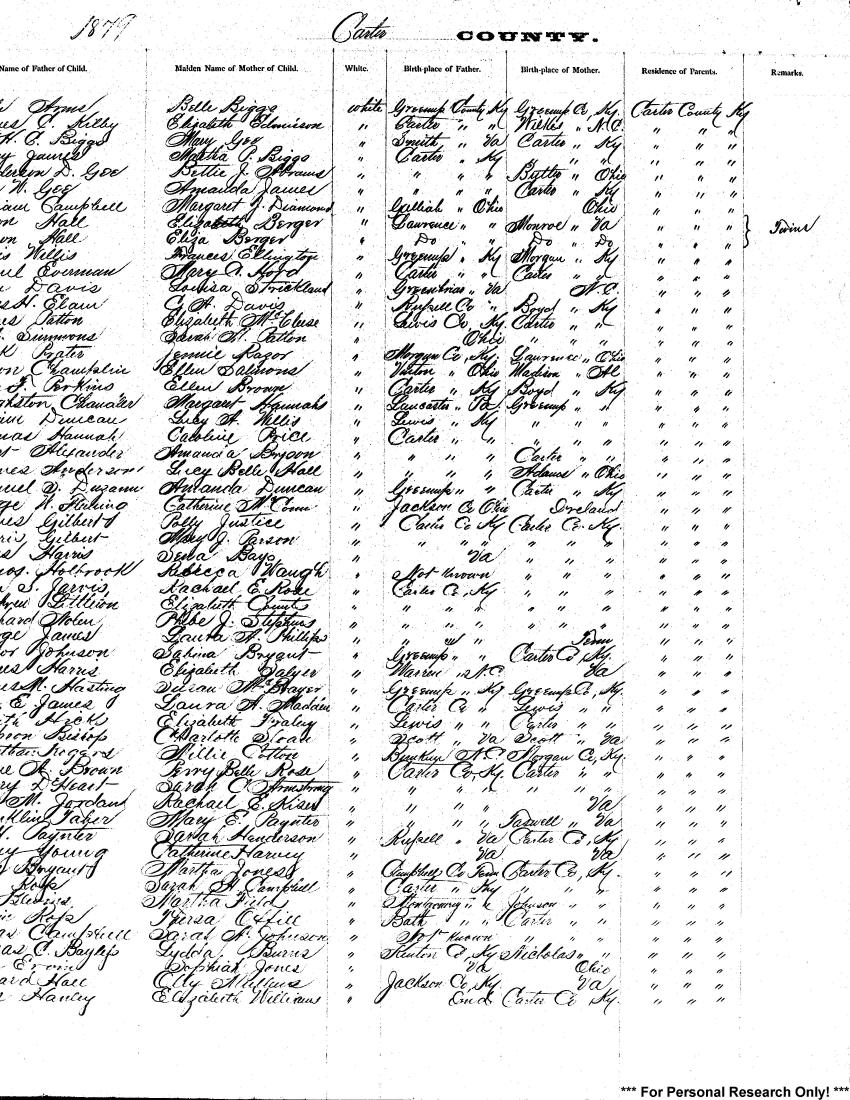 1879 Carter COUNTY.
Name of Father of Child. Maiden Name of Mother of Child. White. Birth-place of Father. Birth-place of Mother. Residence of Parents. Remarks.
Arms Belle Biggs White Greenup County Ky Greenup Co, Ky. Carter County Ky
C. Kilby Elizabeth Edmisson " Carter " " Wilkes " N.C. " " "
H. C. Biggs Mary Gee " Smith " Va Carter " Ky " " "
James Martha T. Biggs " Carter " Ky " " " " "
D. Gee Bettie J. Abrams " " " " Ohio " " "
W. Gee Amanda James " " " " Carter " Ky " " "
Campbell Margaret J. Diamond " Galliah " Ohio Ohio " " "
Hall Elizabeth Berger " Lawrence " " Monroe " Va " " " } Twins
Hall Eliza Berger " Do " " Do " Do " " "
Willis Frances Ellington " Greenup " Ky Morgan " Ky " " "
Everman Mary A. Hord " Carter " " Carter " " " " "
Davis Louisa Strickland " " Va N.C. " " "
H. Elam C. A. Davis " Russell Co " Boyd " Ky " " "
Patton Elizabeth " Lewis Co, Ky. Carter " " " " "
Summons Sarah Patton " Ohio " " " " " "
Prater Jennie Razor " Morgan Co, Ky. Lawrence " Ohio " " "
Champlin Ellen Salmons " Vinton " Ohio Madison " Al " " "
Perkins Ellen Brown " Carter " Ky Boyd " Ky " " "
Margaret Hannahs " Lancaster " Pa. Greenup " " " " "
Duncan Lucy A. Willis " Lewis " Ky " " " " " "
Hannah Caroline Price " Carter " " " " " " " "
Alexander Amanda " " " " Carter " " " " "
Anderson Lucy Belle Hall " " " " Adams " Ohio " " "
Amanda Duncan " Greenup " " Carter " Ky " " "
W. Fleming Catherine " Jackson Co Ohio " " "
Gilbert Polly Justice " Carter Co Ky Carter Co. Ky. " " "
Gilbert Mary J. Parson " " " " " " " " " "
Harris Bays " Va " " " " " "
Holbrook Rebecca Waugh " Not Known " " " " " "
S. Jarvis Rachael E. Rose " Carter Co, Ky " " " " " "
Littleton Elizabeth Counts " " " " " " " " " "
Nolen Phebe J. Stephens " " " " " " " " " "
James Laura A. Phillips " " " Tenn " " "
Johnson Sabina Bryant " Greenup " " Carter Co, Ky. " " "
Harris Elizabeth Salyer " Warren " N.C. Va " " "
M. Hasting Susan " Greenup " Ky Greenup Co, Ky. " " "
E. James Laura A. Madden " Carter Co " Lewis " " " " "
Hick Elizabeth Fraley " Lewis " " Carter " " " " "
Bishop Charlotte Sloan " Scott " Va Scott " Va " " "
Roggers Millie Cotton " N.C. Morgan Co, Ky. " " "
Brown Perry Belle Rose " Carter Co, Ky. Carter " " " " "
Heart Sarah C. Armstrong " " " " " " " " " "
M. Jordan Rachael E. Kiser " " " " Va " " "
Taber Mary E. Paynter " " " " Taswell " Va " " "
Paynter Sarah Henderson " Russell " Va Carter Co, Ky " " "
Young Catherine Harvey " Va Va " " "
Bryant Martha Jones " Campbell Co Tenn Carter Co, Ky. " " "
Ross Sarah A. Campbell " Carter " Ky " " " " " "
Martha Field " Montgomery " " Johnson " " " " "
Ross " Bath " " Carter " " " " "
Campbell Sarah A. Johnson " Not Known " " " " " "
C. Bayless Lydda Burns " Kenton Co, Ky Nicholas " " " " "
Ervin Sophiah Jones " Va Ohio " " "
Hall Elly Mullins " Jackson Co, Ky. Va " " "
Hanley Elizabeth Williams " Ind Carter Co Ky. " " "
*** For Personal Research Only! ***